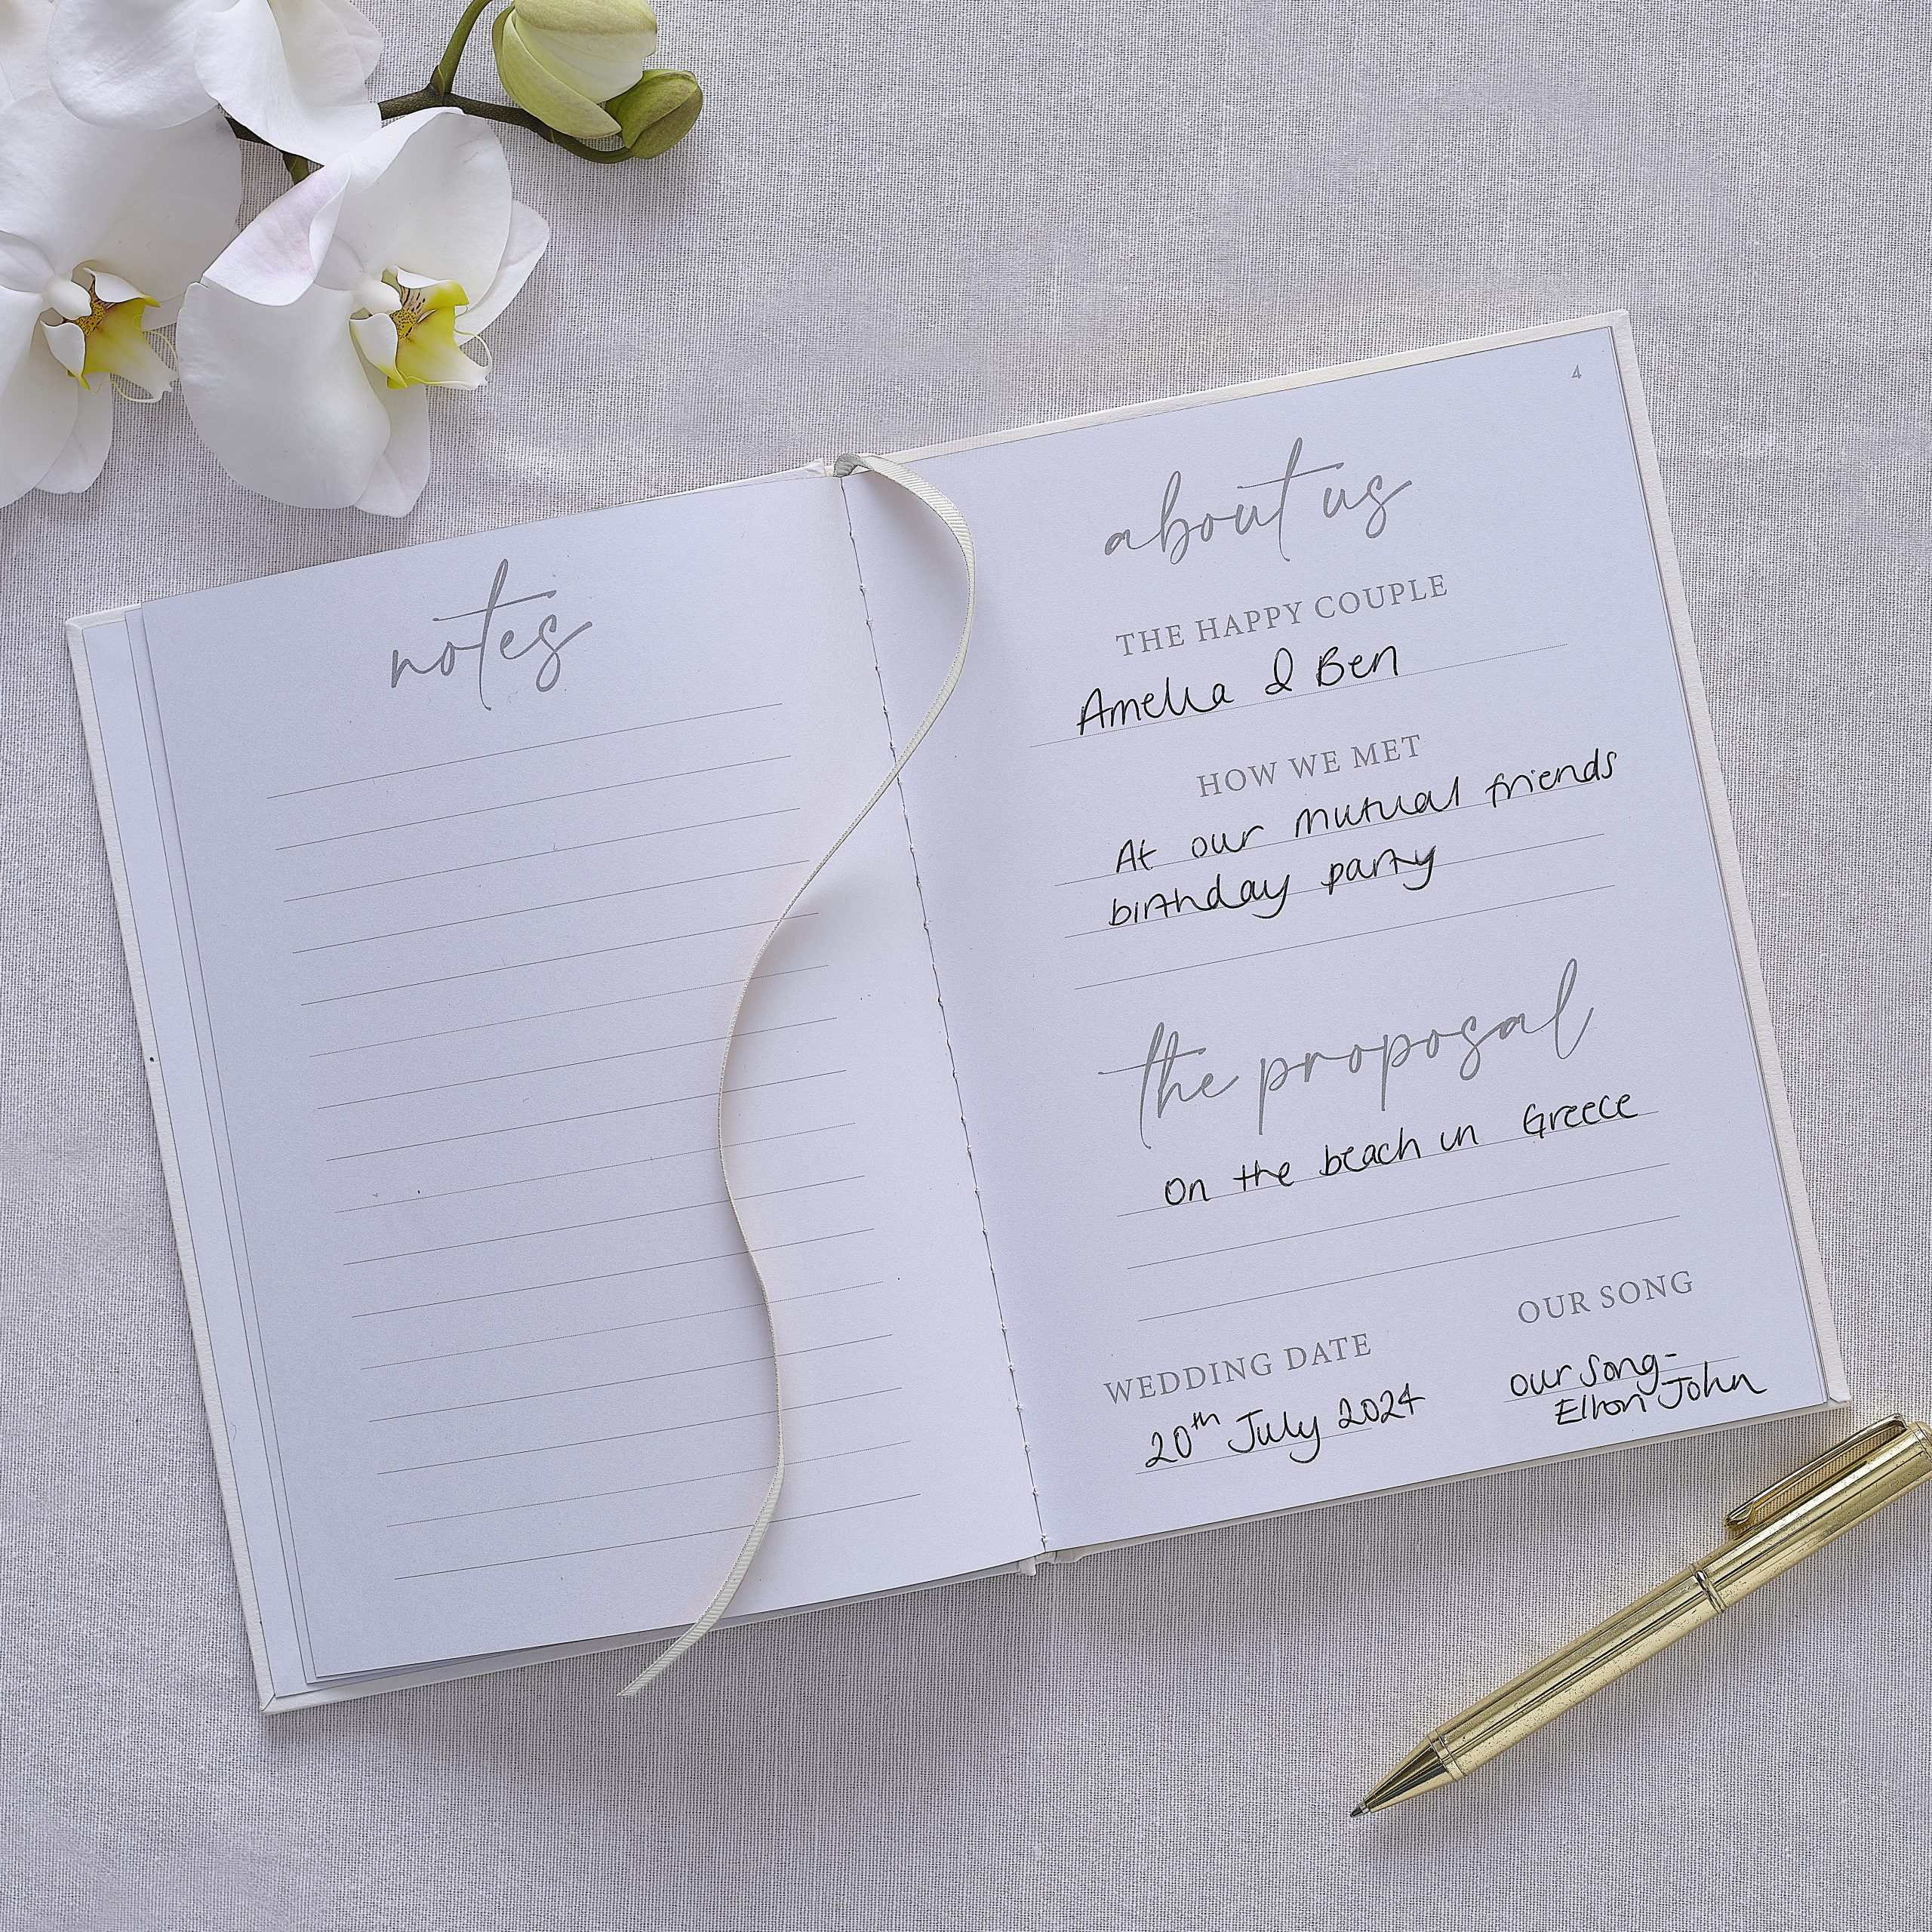 notes
4
about us
THE HAPPY COUPLE
Amelia & Ben
HOW WE MET
At our mutual friends
birthday party
the proposal
On the beach in Greece
WEDDING DATE
20th July 2024
OUR SONG
our song-
Elton John